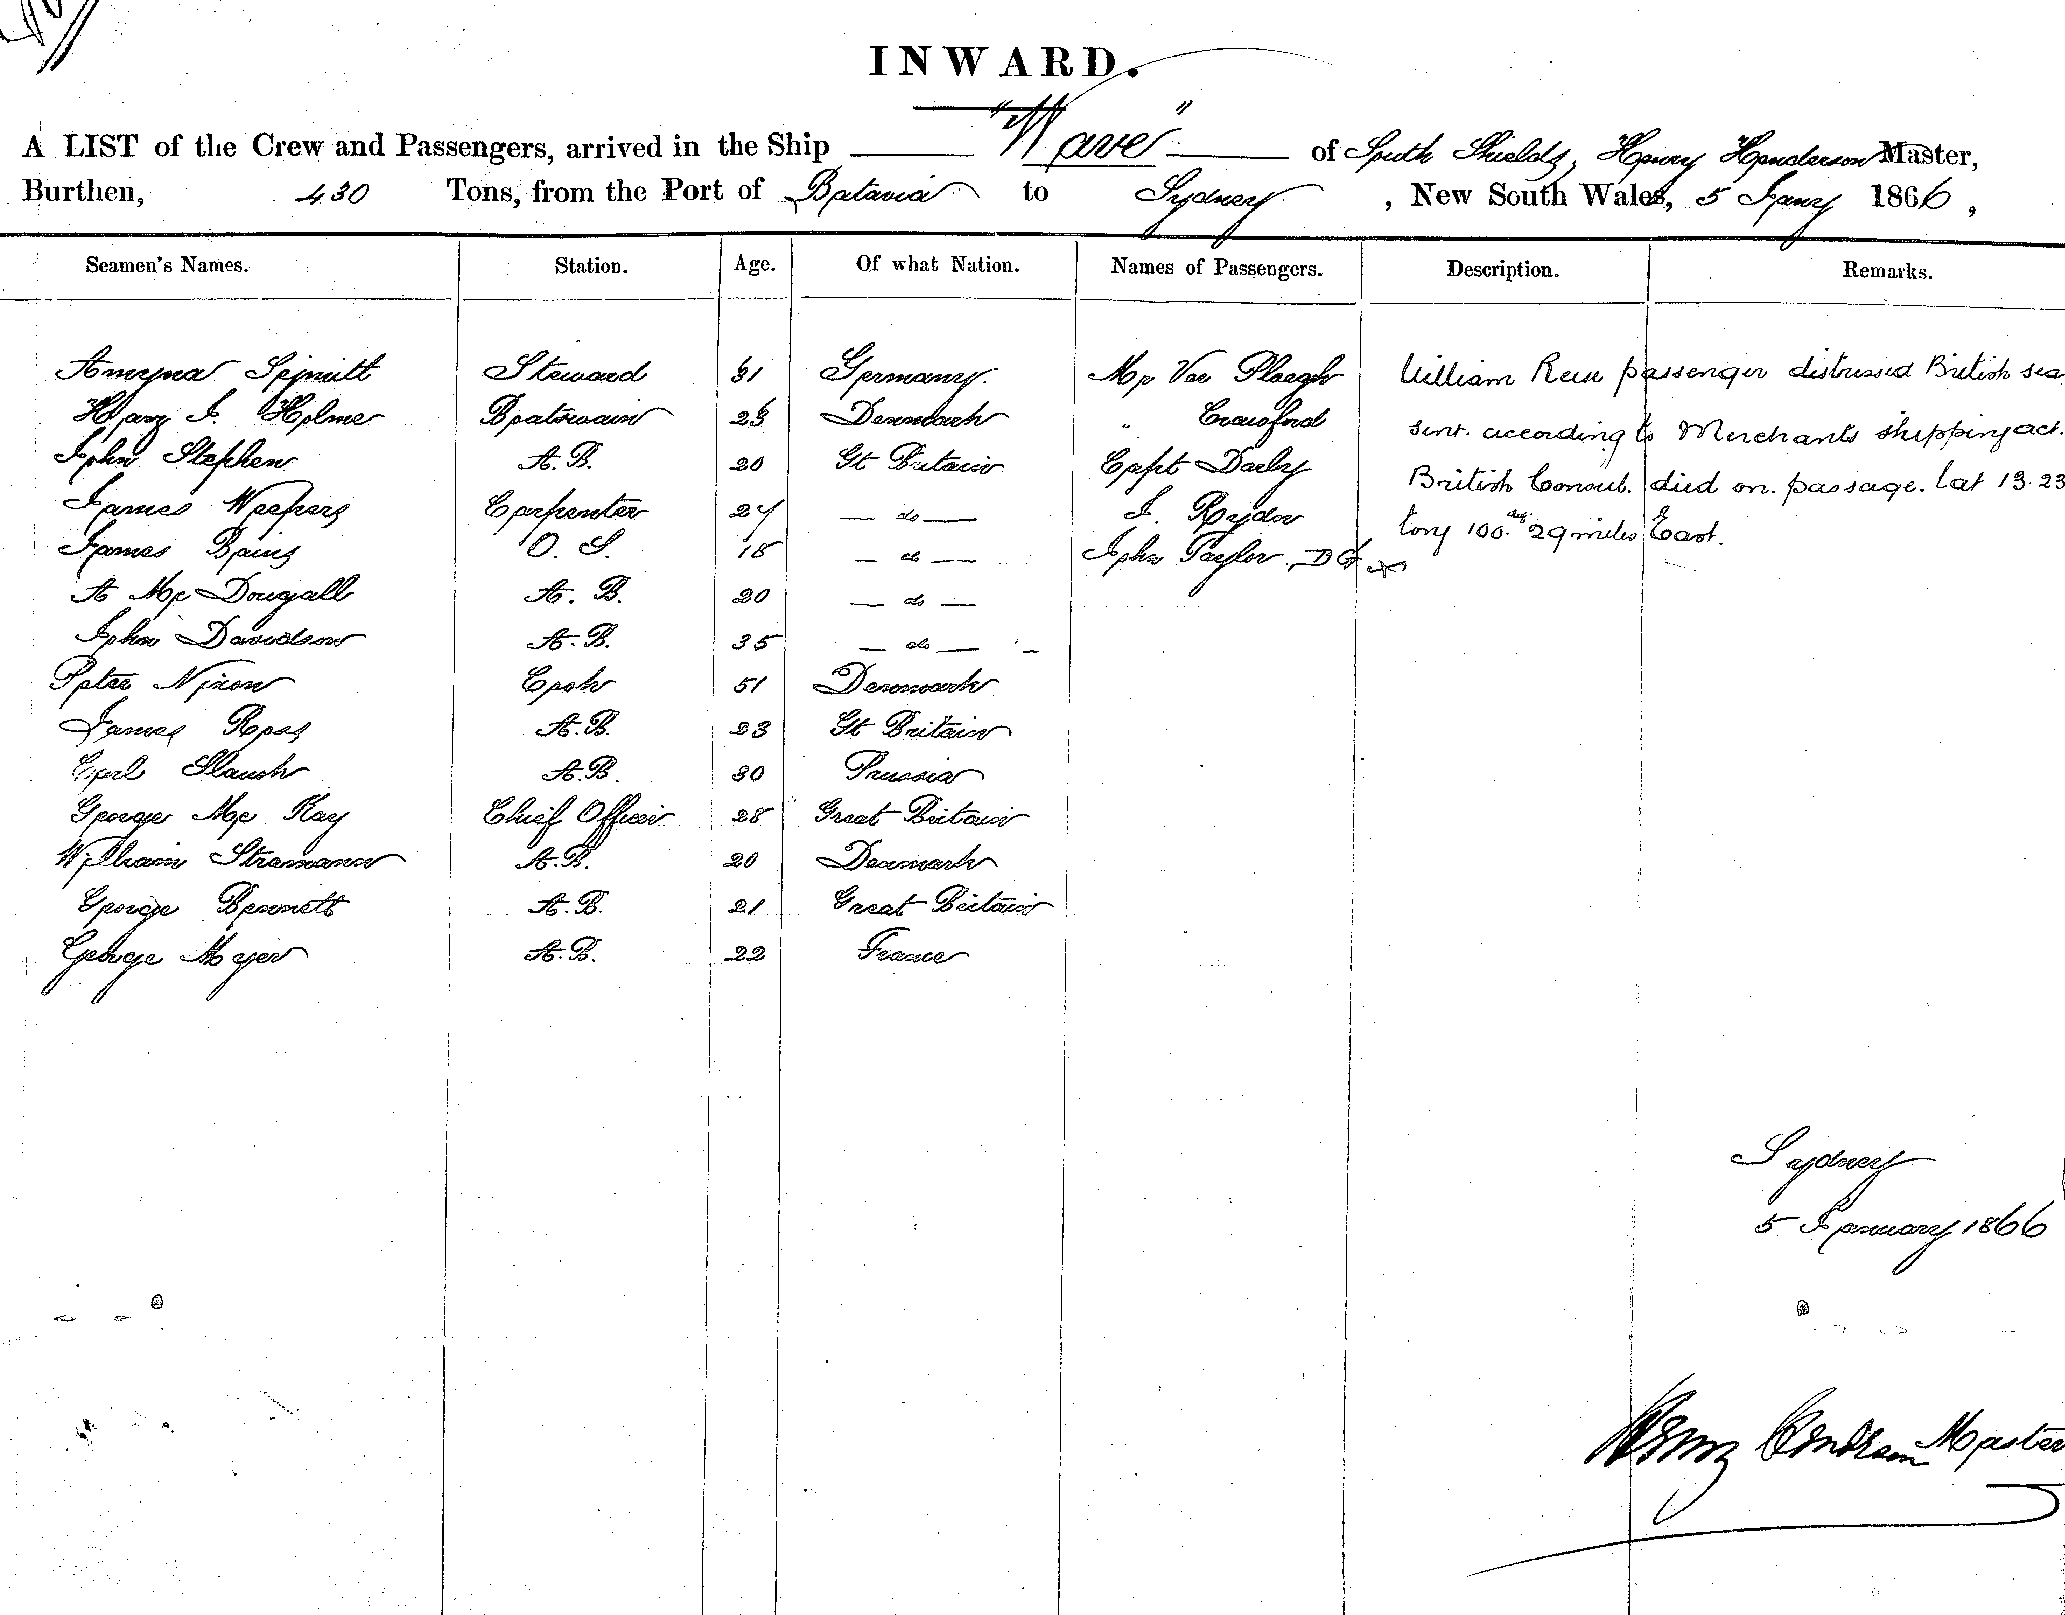 INWARD.
A LIST of the Crew and Passengers, arrived in the Ship "Wave" of South Shields, Henry Henderson Master,
Burthen, 430 Tons, from the Port of Batavia to Sydney, New South Wales, 5 Jany 1866,
Seamen's Names. Station. Age. Of what Nation. Names of Passengers. Description. Remarks.
Steward 31 Germany. Mr Ploegh William passenger distressed British sea
Holme Boatswain Denmark " Crawford sent. according to Merchants shipping act.
John Stephen A.B. 20 Gt Britain Capt Darby British Consul. died on. passage. Lat 13.23
James Carpenter 24 — do — J. Ryder Long 100. deg 29 miles East.
James O.S. 18 — do — John Taylor.
A McDougall A.B. 20 — do —
John Davidson A.B. 35 — do —
Peter Nixon Cook 51 Denmark
James Ross A.B. 23 Gt Britain
Carl A.B. 30 Prussia
George McKay Chief Officer 28 Great Britain
William Stramann A.B. 20 Denmark
George Bennett A.B. 21 Great Britain
George Mayer A.B. 22 France
Sydney
5 January 1866
Master